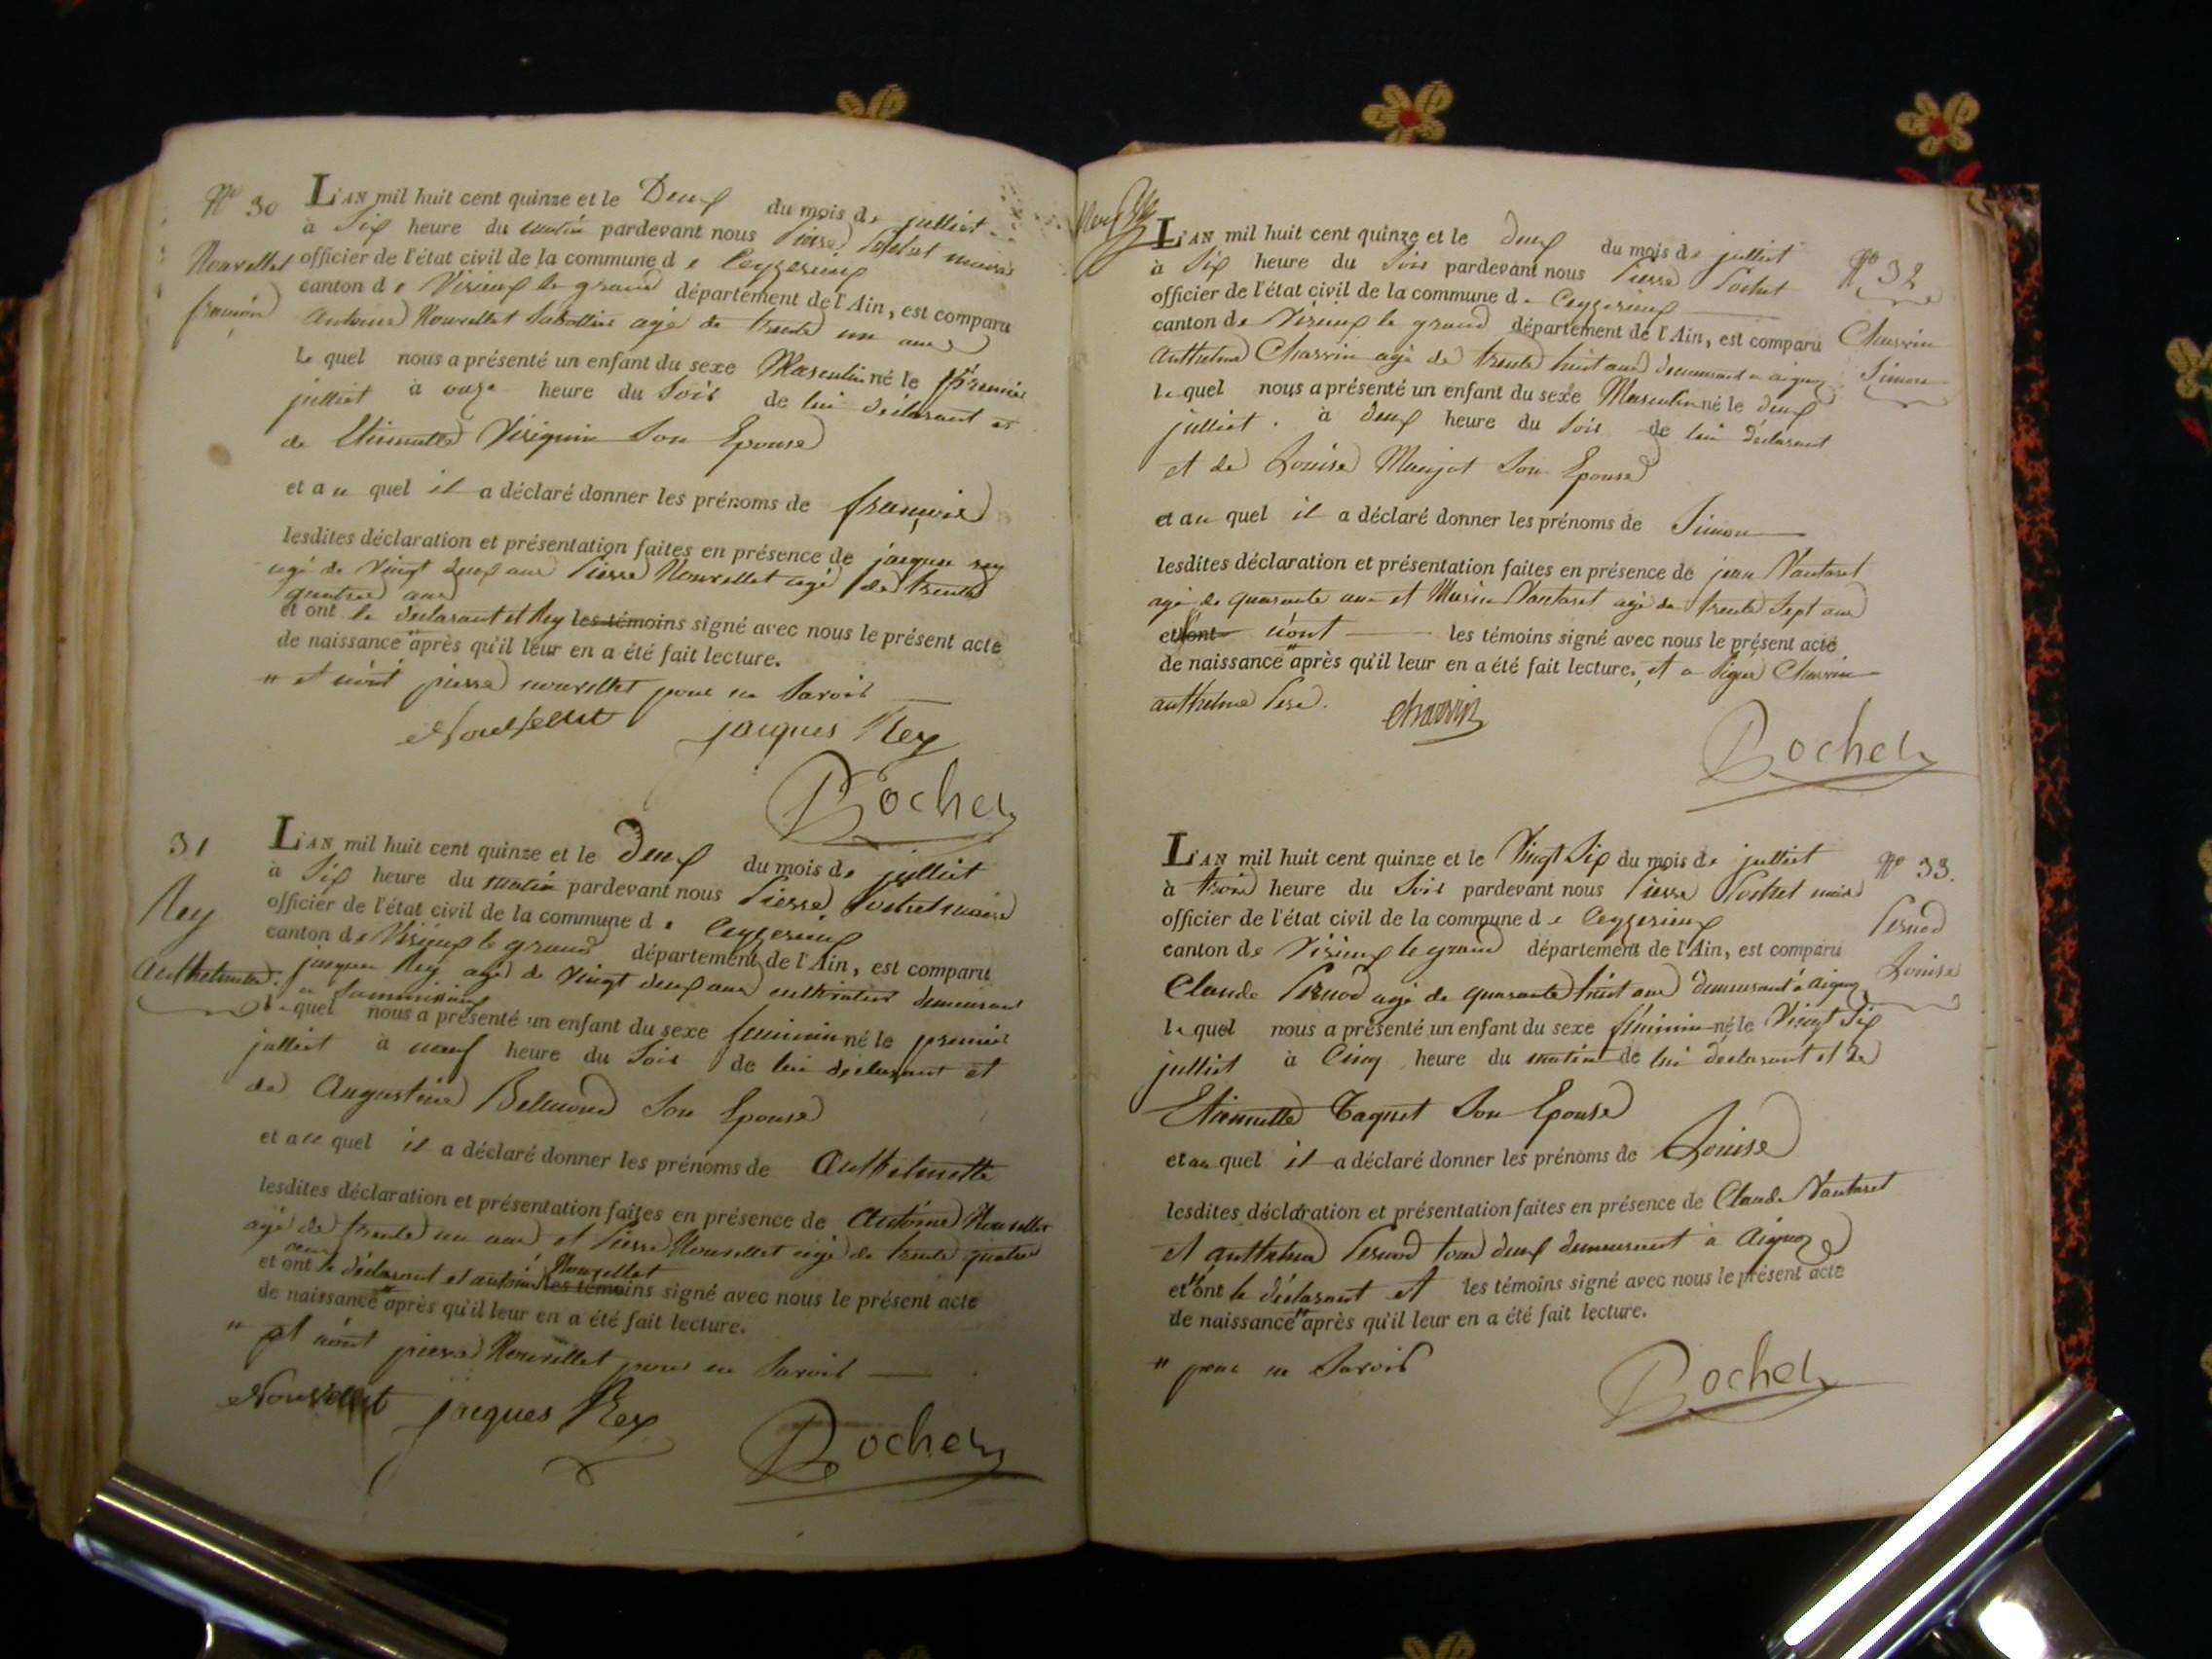 N° 30
Nouvellet
françois
L'AN mil huit cent quinze et le Deux du mois de julliet
à Six heure du matin pardevant nous Pierre Pochet maire
officier de l'état civil de la commune de Ceyzerieux
canton de Virieux le grand département de l'Ain, est comparu
antoine Nouvellet agé de trente un ans
le quel nous a présenté un enfant du sexe Masculin né le premier
julliet à onze heure du Soir de lui déclarant et
de Etiennette Viriguin Son Epouse
et au quel il a déclaré donner les prénoms de françois
lesdites déclaration et présentation faites en présence de jacque rey
agé de Vingt deux ans Pierre Nouvellet agé de trente
quatre ans
et ont le declarant et Rey les témoins signé avec nous le présent acte
de naissance " après qu'il leur en a été fait lecture.
" et nont pierre nouvellet pour ne Savoir
Nouvellet jacques Rey
Pochet
31
Rey
Anthelmette
L'AN mil huit cent quinze et le Deux du mois de julliet
à Six heure du matin pardevant nous Pierre Pochet maire
officier de l'état civil de la commune de Ceyzerieux
canton de Virieux le grand département de l'Ain, est comparu
jacques Rey agé de Vingt deux ans cultivateur demeurant
le quel nous a présenté un enfant du sexe feminin né le premier
julliet à neuf heure du Soir de lui déclarant et
de Augustine Belmond Son Epouse
et au quel il a déclaré donner les prénoms de Anthelmette
lesdites déclaration et présentation faites en présence de Antoine Nouvellet
agé de trente un ans et Pierre Nouvellet agé de trente quatre
ans
et ont le déclarant et antoine Nouvellet les témoins signé avec nous le présent acte
de naissance " après qu'il leur en a été fait lecture.
" et nont pierre Nouvellet pour ne Savoir
Nouvellet jacques Rey
Pochet
L'AN mil huit cent quinze et le deux du mois de julliet
à Six heure du Soir pardevant nous Pierre Pochet
officier de l'état civil de la commune de Ceyzerieux
canton de Virieux le grand département de l'Ain, est comparu
Anthelme Charvin agé de trente huit ans demeurant a aignoz
le quel nous a présenté un enfant du sexe Masculin né le deux
julliet à deux heure du Soir de lui déclarant
et de Louise Manjot Son Epouse
et au quel il a déclaré donner les prénoms de Simon
lesdites déclaration et présentation faites en présence de jean Vantaret
agé de quarante ans et Marin Vantaret agé de trente Sept ans
et ont n'ont les témoins signé avec nous le présent acte
de naissance " après qu'il leur en a été fait lecture., et a Signé Charvin
anthelme Pere. charvin
Pochet
N° 32
Charvin
Simon
L'AN mil huit cent quinze et le Vingt Six du mois de julliet
à trois heure du Soir pardevant nous Pierre Pochet maire
officier de l'état civil de la commune de Ceyzerieux
canton de Virieux le grand département de l'Ain, est comparu
Claude Pernod agé de quarante huit ans demeurant à aignoz
le quel nous a présenté un enfant du sexe féminin né le Vingt Six
julliet à Cinq heure du matin de lui déclarant et de
Etiennette Taquet Son Epouse
et au quel il a déclaré donner les prénoms de Louise
lesdites déclaration et présentation faites en présence de Claude Vantaret
et anthelme Pernod tous deux demeurant à Aignoz
et n'ont le déclarant et les témoins signé avec nous le présent acte
de naissance " après qu'il leur en a été fait lecture.
" pour ne Savoir
Pochet
N° 33.
Pernod
Louise